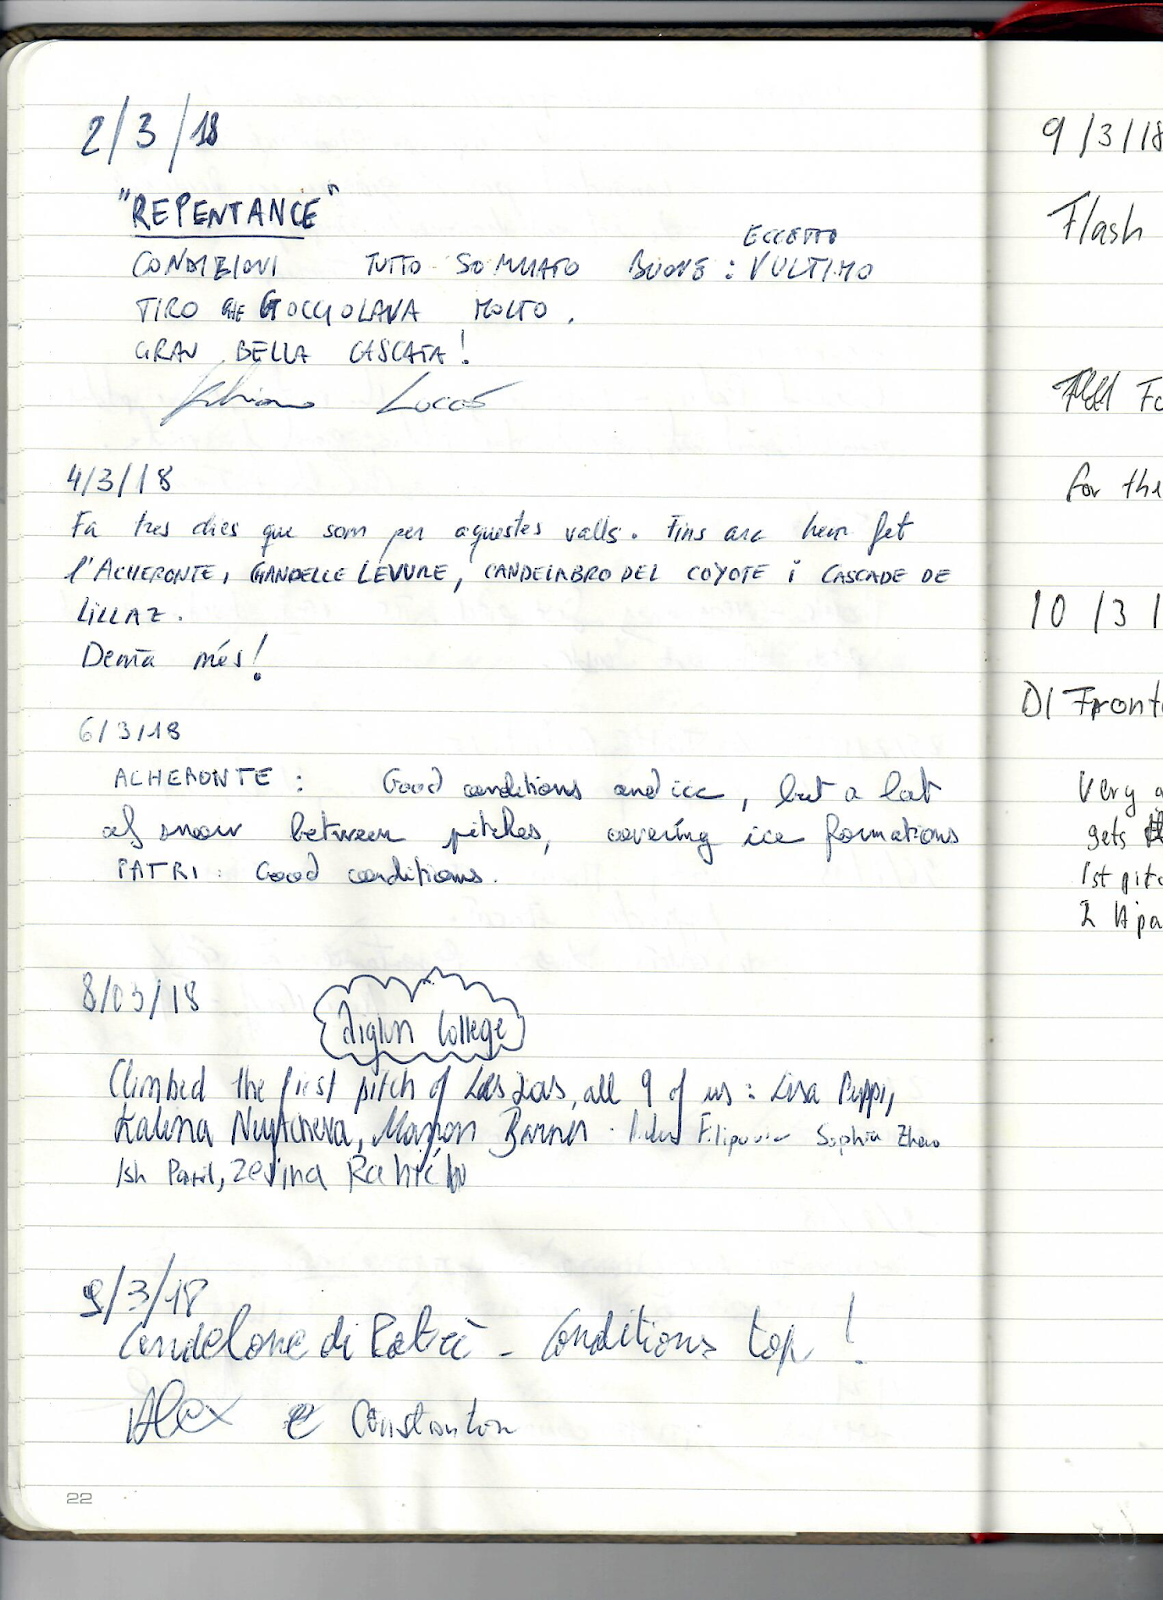 2/3/18
"REPENTANCE"
ECCETTO
CONDIZIONI TUTTO SOMMATO BUONE : L'ULTIMO
TIRO CHE GOCCIOLAVA MOLTO .
GRAN BELLA CASCATA !
Lucas
4/3/18
Fa tres dies que som per aquestes valls. Fins ara hem fet
l'ACHERONTE, GANDELLE LEVURE, CANDELABRO DEL COYOTE i CASCADE DE
LILLAZ.
Demà més!
6/3/18
ACHERONTE : Good conditions and ice, but a lot
of snow between pitches, covering ice formations
PATRI : Good conditions.
8/03/18
College
Climbed the first pitch of all 9 of us : Lisa
Kalina Sophia Zhao
Ish Zerina
9/3/18
Candelone di Patrì - Conditions top !
Alex e Constantin
22
9/3/18
Flash
for the
10/3/1
Di Front
Very g
gets
1st pitc